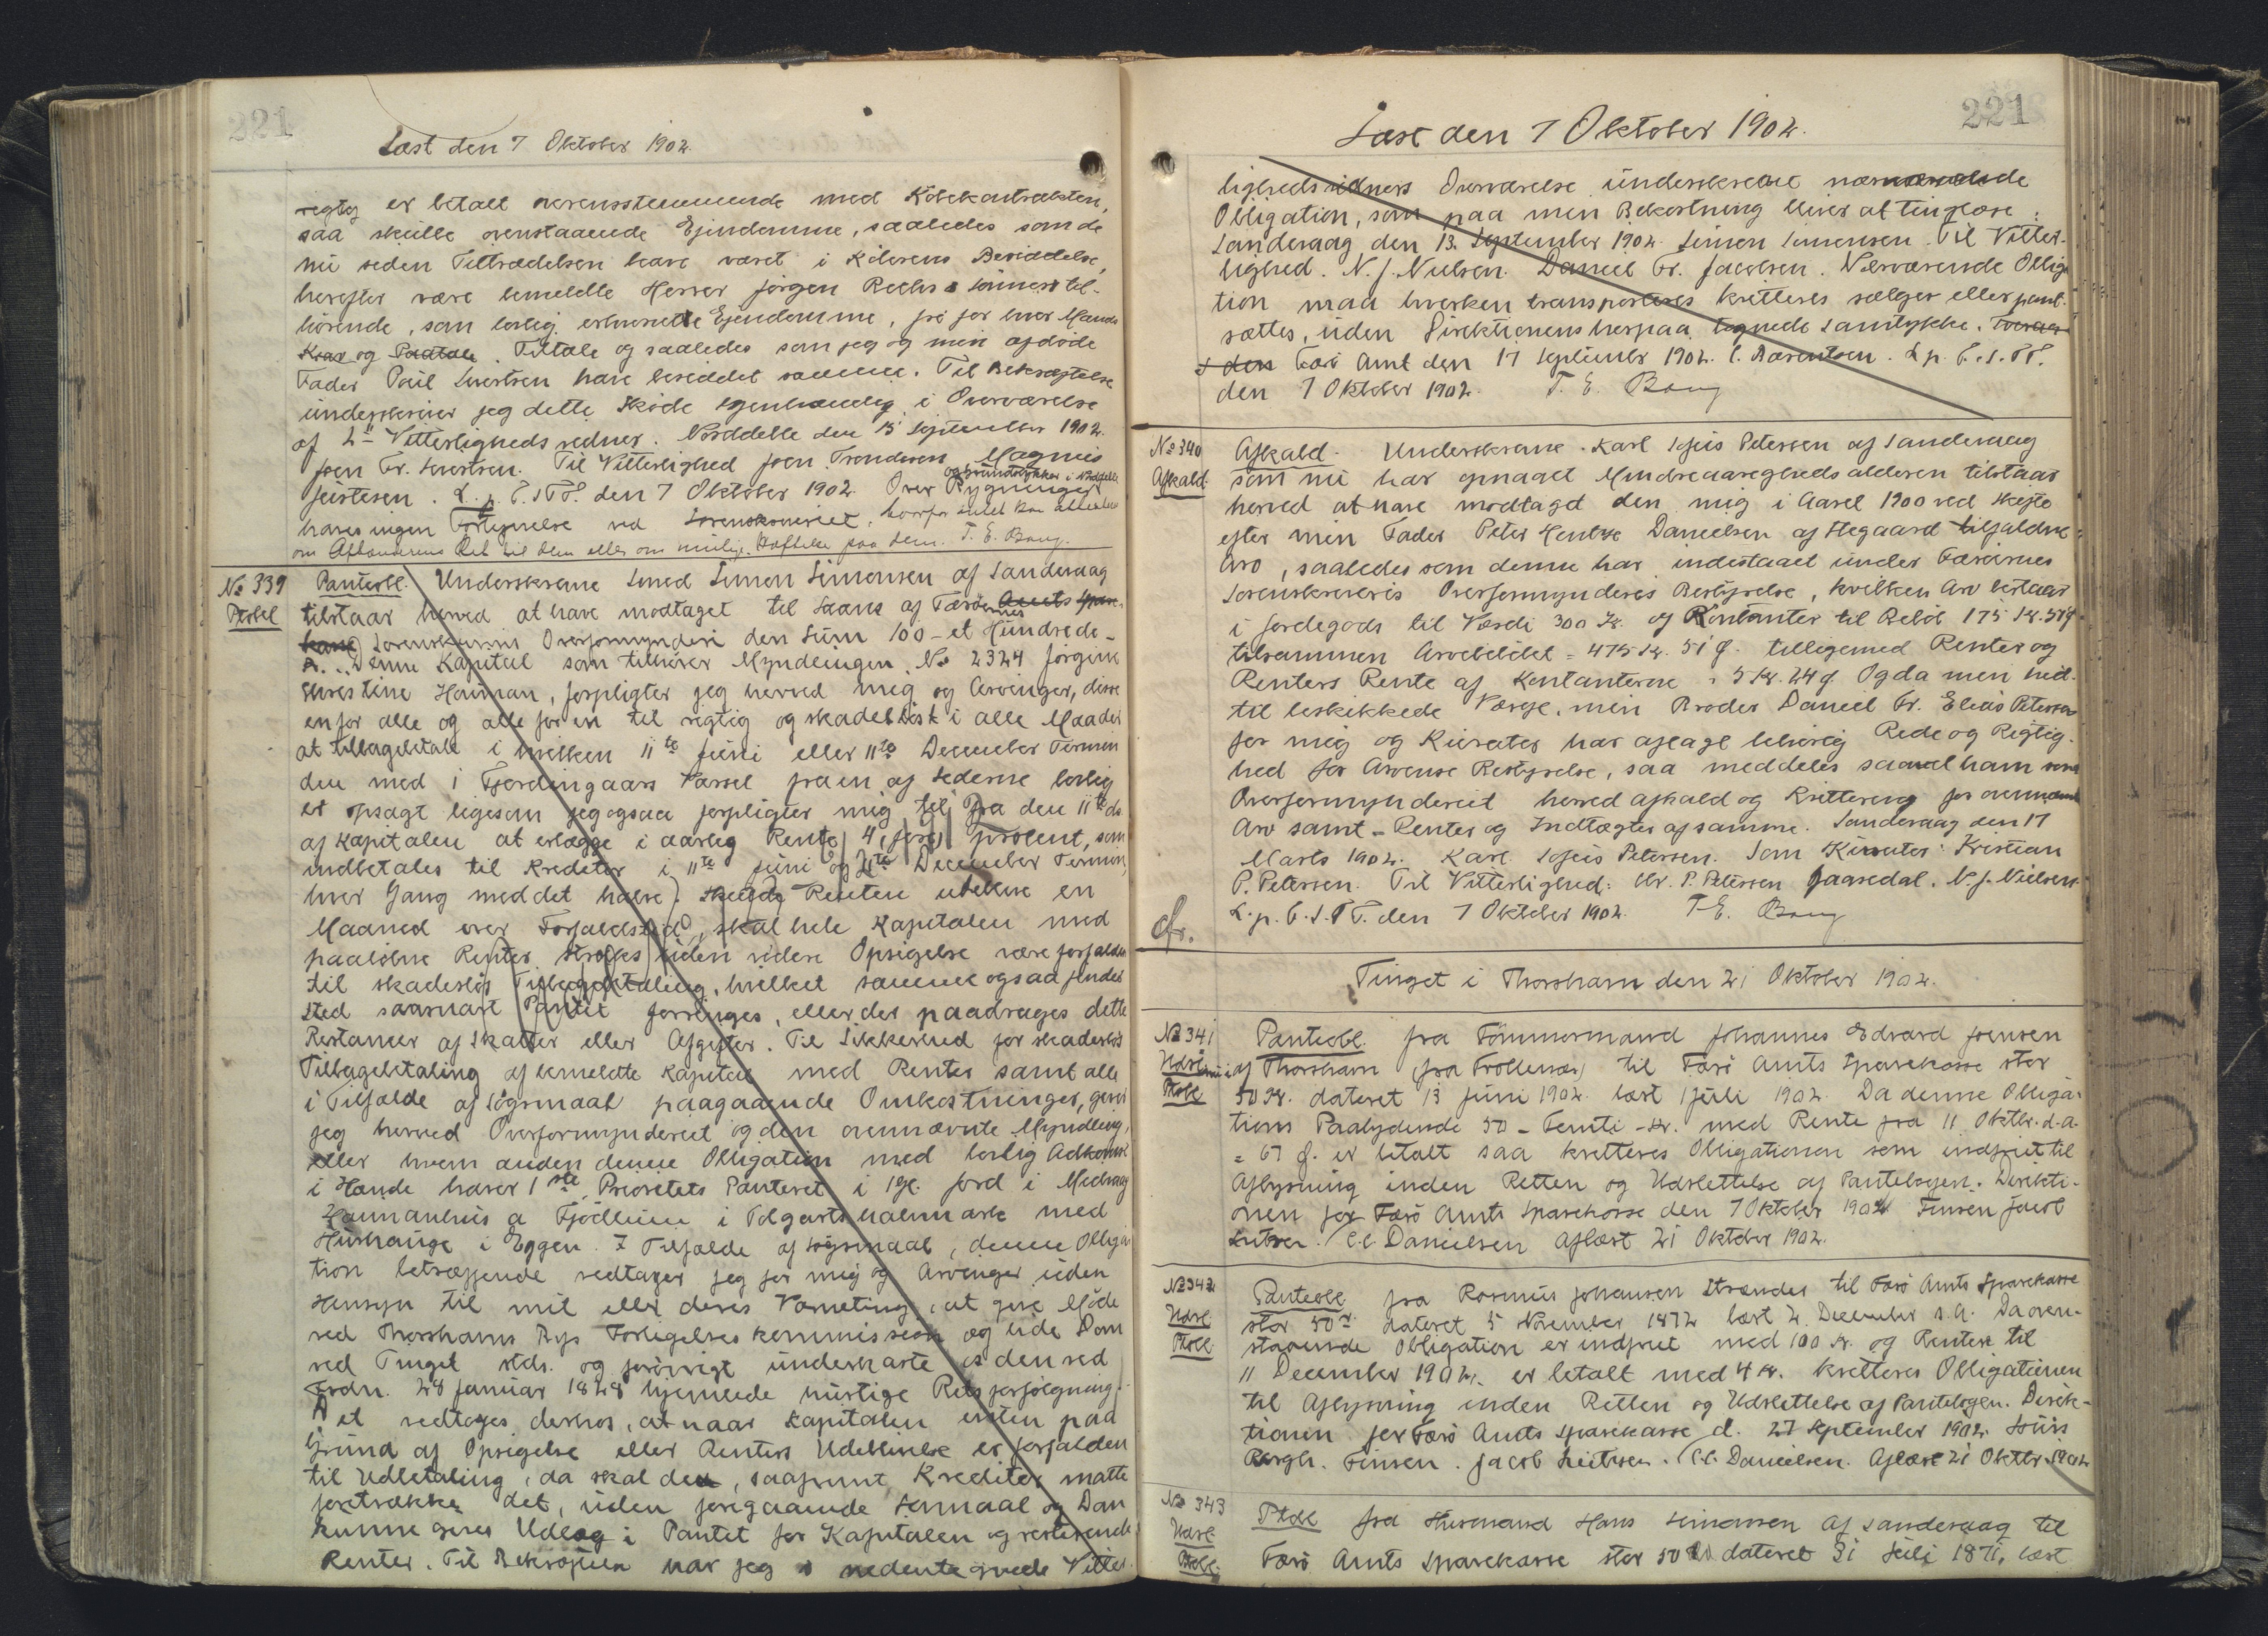 221
Læst den 7 Oktober 1902.
rigtig er betalt overensstemmende med Köbekontrakten,
saa skulle ovenstaaende Ejendomme, saaledes som de
nu siden Tiltrædelsen have været i Köberens Besiddelse,
herefter være bemeldte Herrer Jörgen til-
hörende, som lovlig erhvervede Ejendomme, fri for hver Mands
Krav og Paatale. Tiltale og saaledes som jeg og min afdöde
Fader Poul Sivertsen have besiddet samme. Til Bekræftelse
underskriver jeg dette Sköde egenhændig i Overværelse
af 2de Vitterlighedsvidner. Norddeble den 15 September 1902.
Joen Fr. Sivertsen. Til Vitterlighed Joen Trondesen Magnus
og Grundstykker i Norddeble
Justesen. L. p. F. S. T. P. den 7 Oktober 1902. Over Bygninger
haves ingen Forsynelse ved Sorenskriveriet, hvorfor intet kan attesteres
om Afhænderens Ret til dem eller om mulig Hæftelse paa dem. T. E. Bang.
No 339
Ptobl
Panteobl. Underskrevne Smed Simon Simonsen af Sandevaag
tilstaar herved at have modtaget til Laans af Færöernes Amts Spare-
kasse Sorenskriveri Overformynderi den Sum 100 - et Hundrede -
Kr. Denne Kapital som tilhörer Myndlingen No 2324 Jörgine
Kristine Hauman, forpligter jeg herved mig og Arvinger, disse
en for alle og alle for en til rigtig og skadeslöst i alle Maader
at tilbagebetale i hvilken 11te Juni eller 11te December Termin
den med 1 Fjerdingaars Varsel fra en af Siderne lovlig
er opsagt ligesom jeg ogsaa forpligter mig til fra den 11te ds
af Kapitalen at erlægge i aarlig Rente 4, fire, procent, som
indbetales til Kreditor i 11te Juni og 11te December Termin,
hver Gang med det halve. Skulde Renten udeblive en
Maaned over Forfaldstid, skal hele Kapitalen med
paalöbne Renter straks uden videre Opsigelse være forfalden
til skadeslös Tilbagebetaling, hvilket samme ogsaa finder
Sted saasnart Pantet forringes, eller der paadrages dette
Restancer af Skatter eller Afgifter. Til Sikkerhed for skadeslös
Tilbagebetaling af bemeldte Kapital med Renter samt alle
i Tilfælde af Sögsmaal paagaaende Omkostninger, giver
jeg herved Overformynderiet og den ovennævnte Myndling,
eller hvem anden denne Obligation med lovlig Adkomst
i Hænde haver 1ste Prioritets Panteret i 1 Gl. Jord i Midvaag
Haumanhus a Fjodleim i Tolgarts halvmark med
Hushauge i Eggen. I Tilfælde af Sögsmaal, denne Obliga-
tion betræffende vedtager jeg for mig og Arvinger uden
Hensyn til mit eller deres Værneting, at give Möde
ved Thorshavns Bys Forligelseskommission og lide Dom
ved Tinget stds. og forövrigt underkaste os den ved
Frdn. 28 Januar 1828 hjemlede hurtige Retsforfölgning.
Det vedtages derhos, at naar Kapitalen enten paa
Grund af Opsigelse eller Renters Udeblivelse er forfalden
til Udbetaling, da skal der, saafremt Kreditor matte
foretrække det, uden foregaaende Sömaal og Dom
kunne göres Udlæg i Pantet for Kapitalen og resterende
Renter. Til Bekræftelse har jeg i nedentegnede Vitter-
221
Læst den 7 Oktober 1902.
lighedsvidners Overværelse underskrevet nærværende
Obligation, som paa min Bekostning bliver at tinglæse.
Sandevaag den 13. September 1902. Simon Simonsen. Til Vitter-
lighed. N. J. Nielsen. Daniel Fr. Jacobsen. Nærværende Obliga-
tion maa hverken transporteres kvitteres sælges eller pant-
sættes, uden Direktionens herpaa tegnede Samtykke.
den Færö Amt den 17 September 1902. C. Bærentsen. L. p. F. S. T. P.
den 7 Oktober 1902. T. E. Bang
No 340
Afkald.
Afkald. Underskrevne Karl Sofus Petersen af Sandevaag
som nu har opnaaet Mindreaarighedsalderen tilstaar
herved at have modtaget den mig i Aaret 1900 ved Skifte
efter min Fader Peter Hentze Danielsen af Stegaard tilfaldne
Arv, saaledes som denne har indestaaet under Færöernes
Sorenskriveris Overformynderis Bestyrelse, hvilken Arv bestaar
i Jordegods til Værdi 300 Kr. og Kontanter til Belöb 175 Kr. 51 Ø
tilsammen Arvebelöbet = 475 Kr. 51 Ø. tilligemed Renter og
Renters Rente af Kontanterne = 5 Kr. 24 Ø Og da min hid-
til beskikkede Værge, min Broder Daniel Fr. Elias Petersen
for mig og Kurator har aflagt behörig Rede og Rigtig-
hed for Arvens Bestyrelse, saa meddeles saavel ham som
Overformynderiet herved Afkald og Kvittering for ovennævnte
Arv samt Renter og Indtægter af samme. Sandevaag den 17
Marts 1902. Karl Sofus Petersen. Som Kurator: Kristian
P. Petersen. Til Vitterlighed: Chr. P. Petersen Jaasedal. N. J. Nielsen.
L. p. F. S. T. P. den 7 Oktober 1902. T. E. Bang
cfr.
Tinget i Thorshavn den 21 Oktober 1902.
No 341
Udsl
Ptobl
Panteobl. fra Tömmermand Johannes Edvard Joensen
af Thorshavn (fra Trollenæs) til Færö Amts Sparekasse stor
50 Kr. dateret 13 Juni 1902 læst 1 Juli 1902. Da denne Obliga-
tions Paalydende 50 - Femti - Kr. med Rente fra 11 Oktbr. d. a.
= 67 Ø. er betalt saa kvitteres Obligationen som indfriet til
Aflysning inden Retten og Udslettelse af Pantebogen. Direkti-
onen for Færö Amts Sparekasse den 7 Oktober 1902 Finsen Jacob
Lutzen. C. C. Danielsen Aflæst 21 Oktober 1902.
No 342
Udsl
Ptobl
Panteobl fra Rasmus Johansen Strænder til Færö Amts Sparekasse
stor 50 rd dateret 5 November 1872 læst 2 December s. A. Da oven-
staaende Obligation er indfriet med 100 Kr. og Renten til
11 December 1902, er betalt med 4 Kr. kvitteres Obligationen
til Aflysning inden Retten og Udslettelse af Pantebogen. Direk-
tionen for Færö Amts Sparekasse d. 27 September 1902. Louis
Bergh. Finsen. Jacob Lutzen. C. C. Danielsen. Aflæst 21 Oktbr. 1902
No 343
Udsl
Ptobl.
Ptobl fra Husmand Hans Simonsen af Sandevaag til
Færö Amts Sparekasse stor 50 Rd dateret 31 Juli 1871, læst